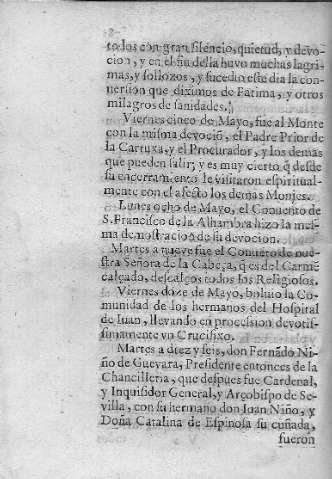 todos con gran silencio, quietud, y devo-
cion, y en el fin della huvo muchas lagri-
mas, y sollozos, y sucedio este dia la con-
version que diximos de Fatima, y otros
milagros de sanidades.
Viernes cinco de Mayo, fue al Monte
con la misma devociõ, el Padre Prior de
la Cartuxa, y el Procurador, y los demas
que pueden salir; y es muy cierto q̃ desde
su encerramiento le visitaron espiritual-
mente con el afecto los demas Monjes.
Lunes ocho de Mayo, el Convento de
S. Francisco de la Alhambra hizo la mes-
ma demostracion de su devocion.
Martes a nueve fue el Convẽto de nue-
stra Señora de la Cabeça, q̃ es del Carmẽ
calçado, descalços todos los Religiosos.
Viernes doze de Mayo, bolvio la Co-
munidad de los hermanos del Hospital
de Iuan, llevando en procession devotis-
simamente vn Crucifixo.
Martes a diez y seis, don Fernãdo Ni-
ño de Guevara, Presidente entonces de la
Chancilleria, que despues fue Cardenal,
y Inquisidor General, y Arçobispo de Se-
villa, con su hermano don Iuan Niño, y
Doña Catalina de Espinosa su cuñada,
fueron